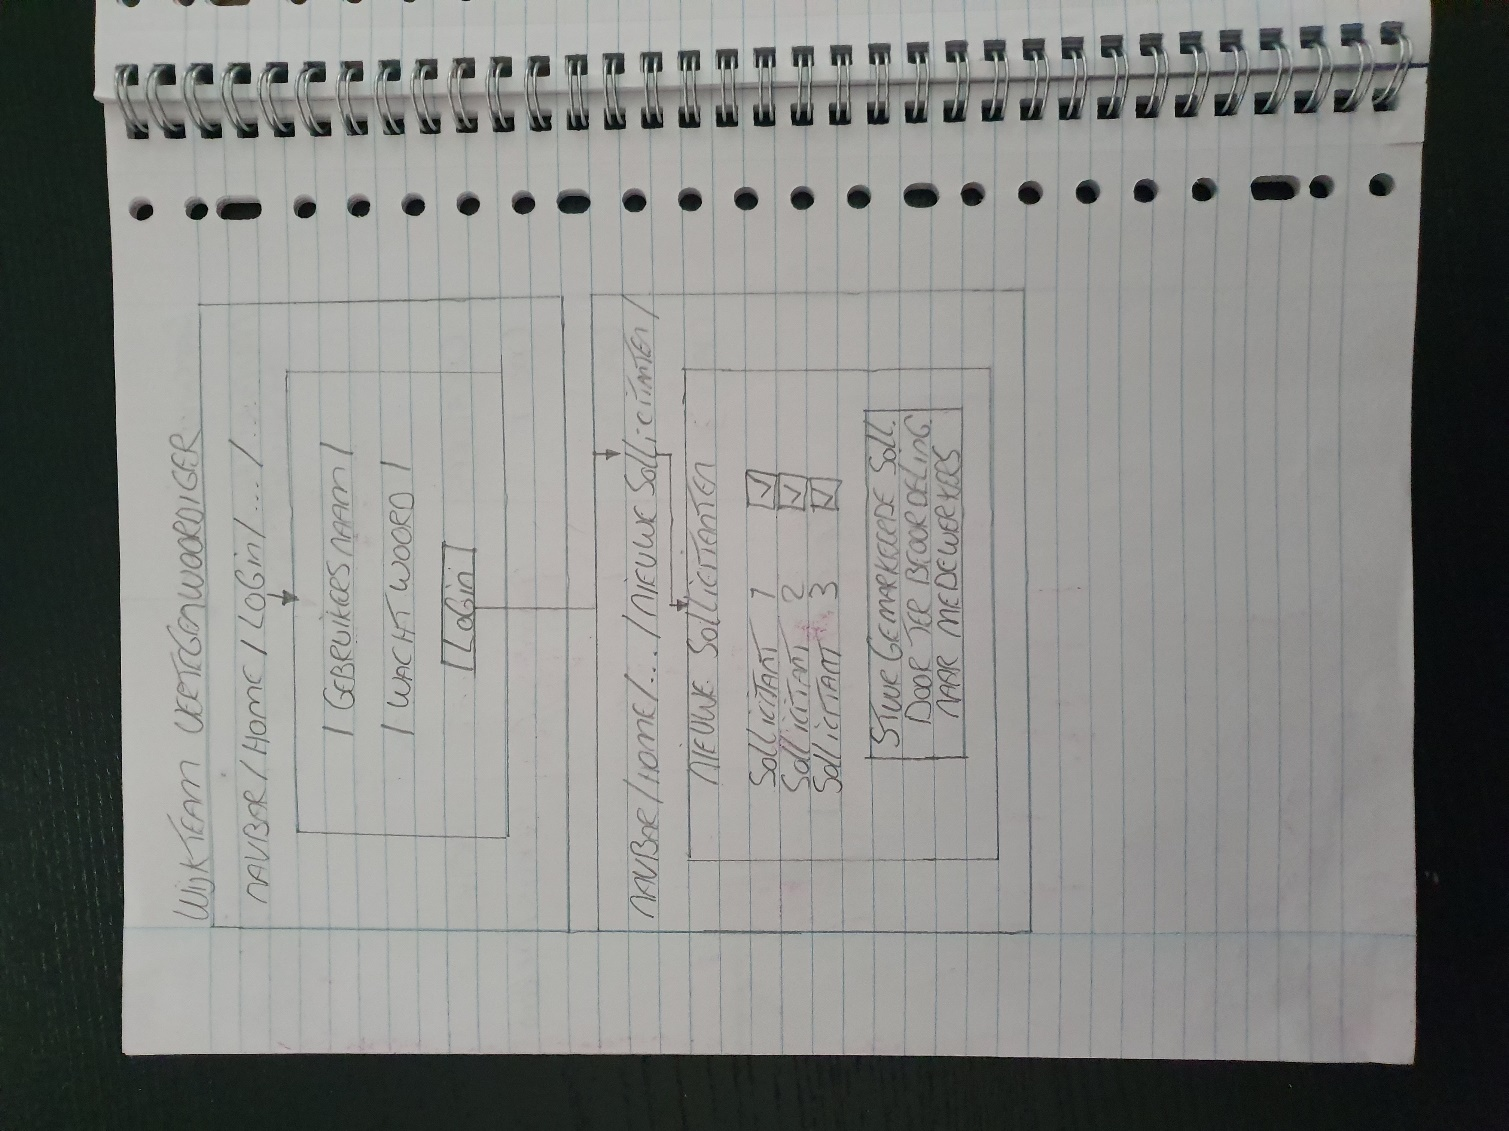 WIJKTEAM VERTEGENWOORDIGER
NAVBAR / HOME / LOGIN / .... / ...
/ GEBRUIKERSNAAM /
/ WACHTWOORD /
LOGIN
NAVBAR / HOME / ... / NIEUWE SOLLICITANTEN /
NIEUWE SOLLICITANTEN
SOLLICITANT 1
SOLLICITANT 2
SOLLICITANT 3
STUUR GEMARKEERDE SOLL.
DOOR TER BEOORDELING
NAAR MEDEWERKERS